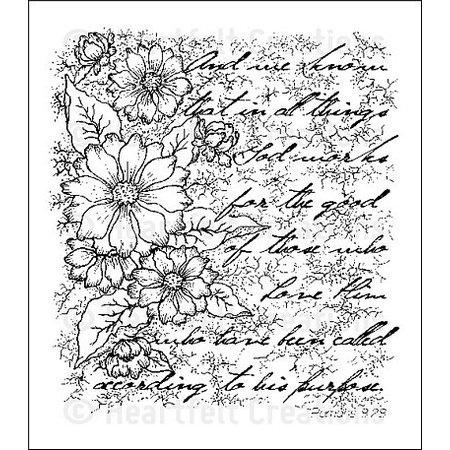 © Heartfelt Creations
And we know
that in all things
God works
for the good
of those who
love Him
who have been called
according to his purpose.
© Heartfelt Creations